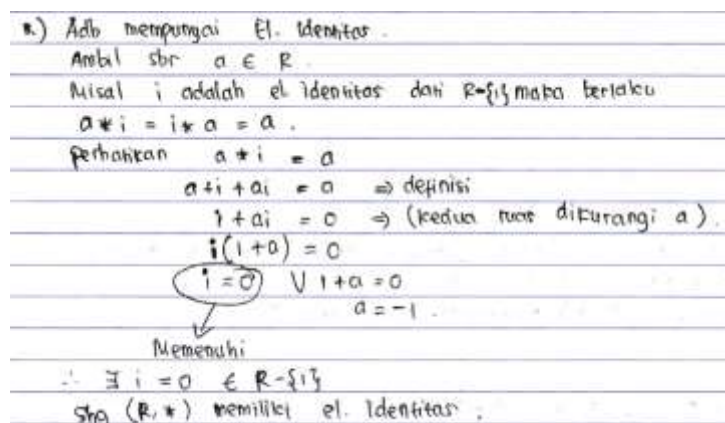 *.) Adb mempunyai El. Identitas.
Ambil sbr a ∈ R
Misal i adalah el identitas dari R-{1} maka berlaku
a * i = i * a = a .
perhatikan a * i = a
a + i + ai = a ⇒ definisi
i + ai = 0 ⇒ (kedua ruas dikurangi a).
i(1+a) = 0
i = 0 V 1+a = 0
a = -1 .
Memenuhi
∴ ∃ i = 0 ∈ R-{1}
shg (R, *) memiliki el. Identitas .